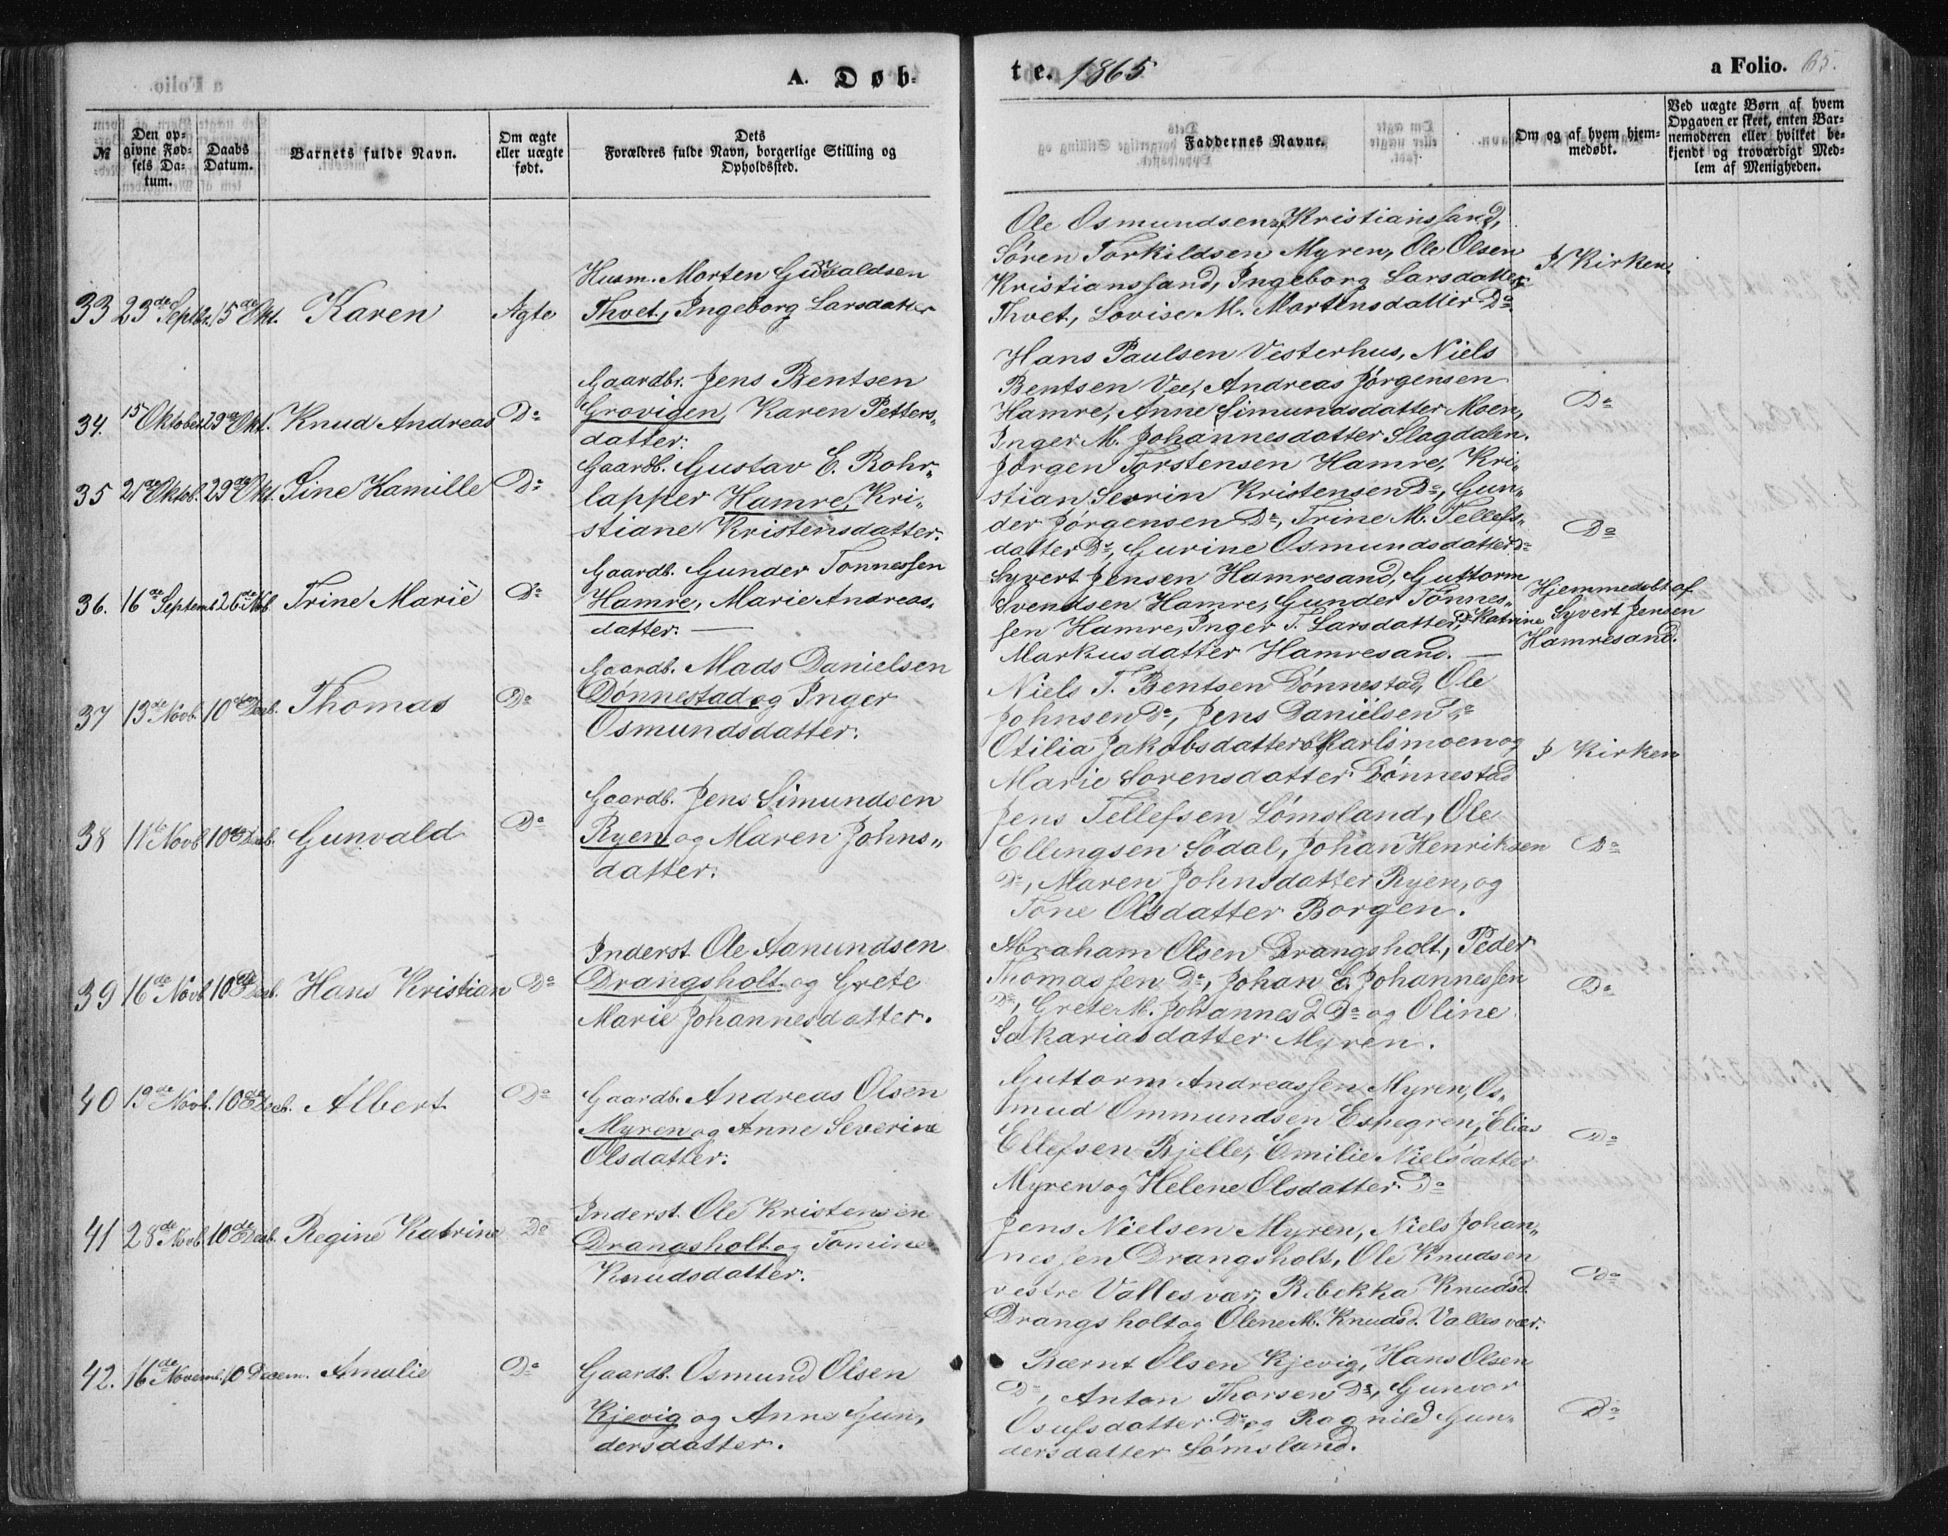 A. Døb-
№
Den opgivne Fødsels Datum.
Daabs Datum.
Barnets fulde Navn.
Om ægte eller uægte født.
Dets Forældres fulde Navn, borgerlige Stilling og Opholdssted.
33 23de Septbr. 15de Okt. Karen Ægte
Husm. Morten Guvaldsen
Thvet, Ingeborg Larsdatter
34. 15 Oktober 29de Okt. Knud Andreas Do
Gaardbr. Jens Bentsen
Grovigen, Karen Petters-
datter.
35 21de Oktob. 29de Okt. Sine Kamille Do
Gaardb. Gustav E. Rohr-
lapper Hamre, Kri-
stiane Kristensdatter.
36. 16de Septemb 26de Nob Trine Marie Do
Gaardb. Gunder Tønnessen
Hamre, Marie Andreas-
datter. —
37 13de Novb. 10de Decb. Thomas Do
Gaardb. Mads Danielsen
Dønnestad og Inger
Osmundsdatter.
38 11te Novb 10de Decb. Gunvald Do
Gaardb. Jens Simundsen
Ryen og Maren Johns-
datter.
39 16de Novb 10de Decb. Hans Kristian Do
Inderst. Ole Aanundsen
Drangsholt og Grete
Marie Johannesdatter.
40 19de Novb. 10de Decb. Albert Do
Gaardb. Andreas Olsen
Myren og Anne Severine
Olsdatter.
41 28de Novb 10de Decb. Regine Katrine Do
Inderst. Ole Kristensen
Drangsholt og Tomine
Knudsdatter.
42. 16de Novemb. 10 Decem. Amalie Do
Gaardb. Osmund Olsen
Kjevig og Anne Gun-
dersdatter.
te. 1865 a Folio. 65.
Faddernes Navne.
Om og af hvem hjemmedøbt.
Ved uægte Børn af hvem Opgaven er skeet, enten Barnemoderen eller hvilket bekjendt og troværdigt Medlem af Menigheden.
Ole Osmundsen af Kristianssand,
Søren Torkildsen Myren, Ole Olsen
Kristianssand, Ingeborg Larsdatter
Thvet, Lovise M. Mortensdatter Do
I Kirken.
Hans Paulsen Vesterhus, Niels
Bentsen Vee, Andreas Jørgensen
Hamre, Anne Simundsdatter Moen,
Inger M. Johannesdatter Slagdalen.
Do
Jørgen Torstensen Hamre, Kri-
stian Severin Kristensen Do, Gun-
der Jørgensen Do, Trine M. Tellefs-
datter Do, Gurine Osmundsdatter Do
Do
Syvert Jensen Hamresand, Guttorm
Svendsen Hamre, Gunder Tønnes-
sen Hamre, Inger T. Larsdatter Do, Katrine
Markusdatter Hamresand. —
Hjemmedøbt af
Syvert Jensen
Hamresand.
Niels T. Bentsen Dønnestad, Ole
Johnsen Do, Jens Danielsen Do
Otilia Jakobsdatter af Karlsmoen og
Marie Sørensdatter Dønnestad
I Kirken
Jens Tellefsen Lømsland, Ole
Ellingsen Sødal, Johan Henriksen
Do, Maren Johnsdatter Ryen, og
Tone Olsdatter Borgen.
Do
Abraham Olsen Drangsholt, Peder
Thomassen Do, Johan E. Johannessen
Do, Grete M. Johannesd Do og Oline
Sakariasdatter Myren.
Do
Guttorm Andreassen Myren, Os-
mud Ommundsen Espegren, Elias
Ellefsen Bjelle, Emilie Nielsdatter
Myren og Helene Olsdatter Do
Do
Jens Nielsen Myren, Niels Johan-
nessen Drangsholt, Ole Knudsen
vestre Vallesvær, Rebekka Knudsd
Drangsholt og Olene M. Knudsd. Vallesvær.
Do
Bærnt Olsen Kjevig, Hans Olsen
Do, Anton Thorsen Do, Gunvor
Osufsdatter Do og Ragnild Gun-
dersdatter Lømsland.
Do